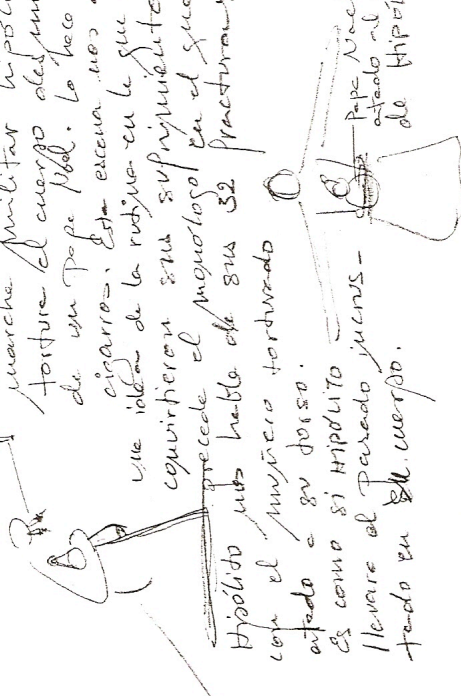 marcha militar Hipóli
tortura el cuerpo del mu
de un papa Noel. Lo hace
cigarros. Esta escena nos
una idea de la rutina en la que
convirtieron sus sufrimiento
precede el monólogo en el que
Hipólito nos habla de sus 32 fracturas
con el muñeco torturado
atado a su torso.
Es como si Hipólito
llevara el pasado incrus-
tado en su cuerpo.
Papa Noe
atado al
de Hipól